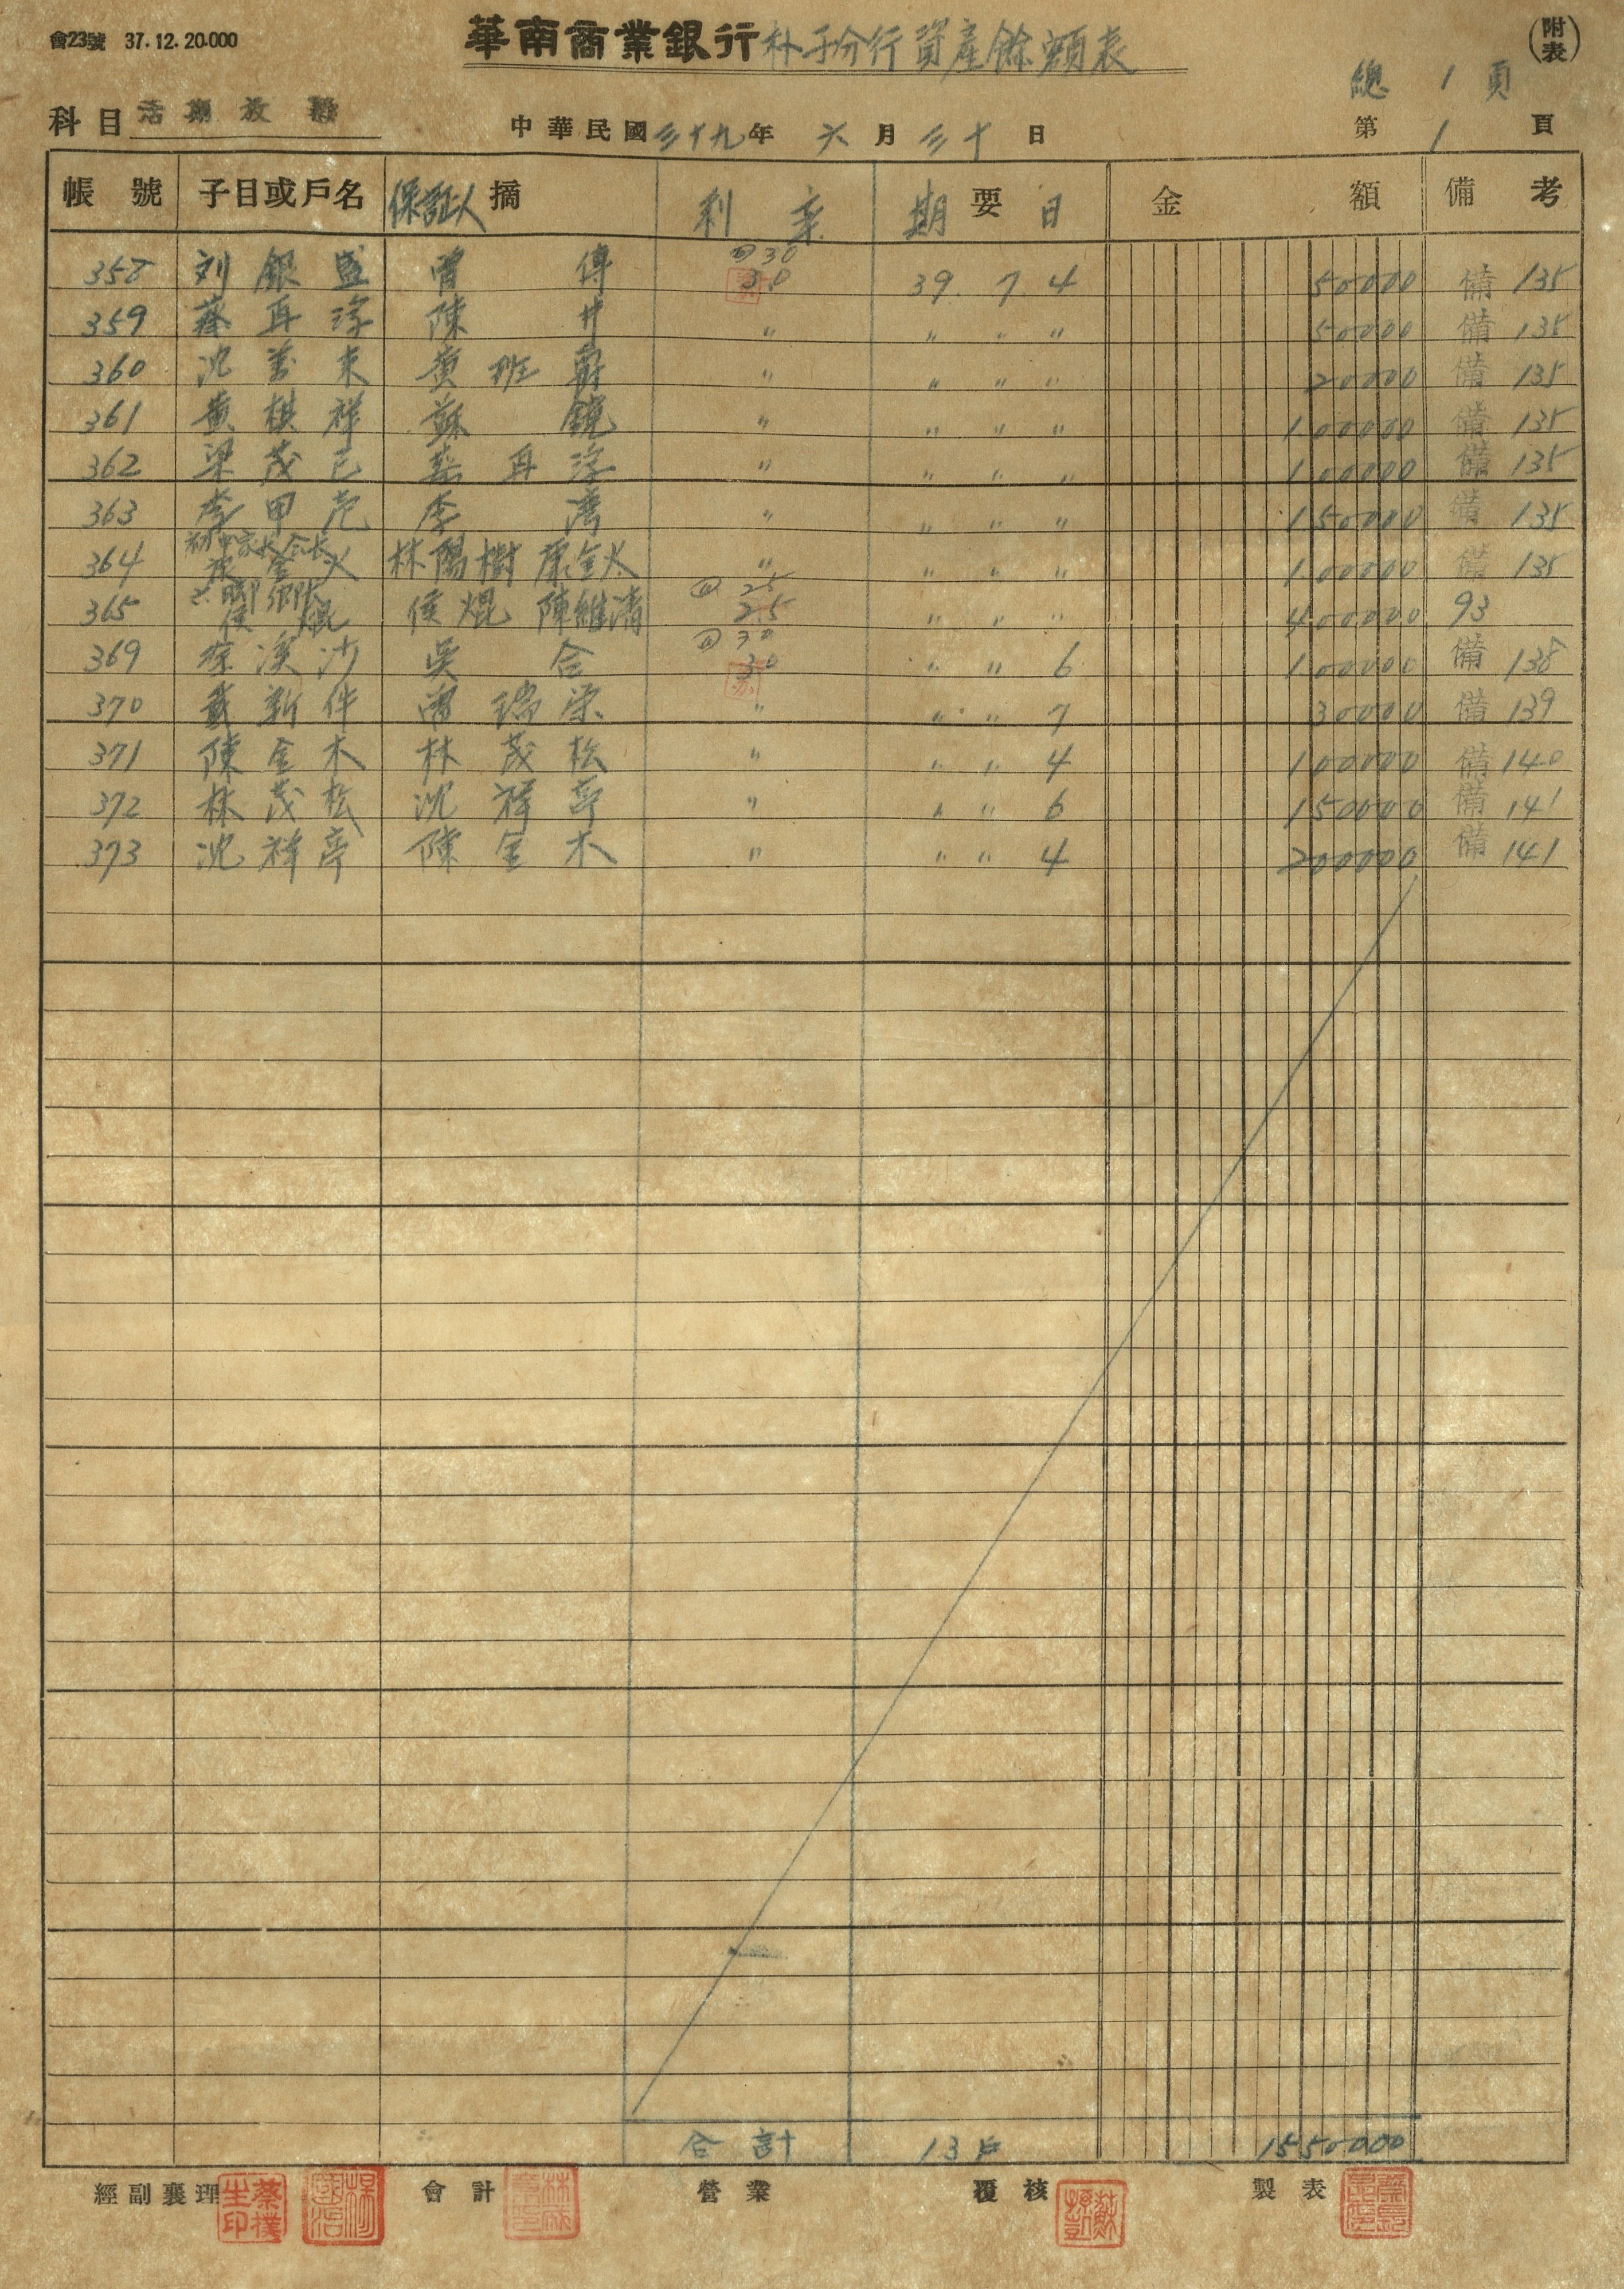 會23號 37.12.20.000
華南商業銀行朴子分行資產餘額表
(附表)
總 1 頁
科目 活期放款 中華民國三十九年六月三十日 第 1 頁
帳號 子目或戶名 保証人 摘 利率 期 要 日 金 額 備考
358 刘銀盛 曾傳 30 30 39. 7. 4 50000 備 135
359 蔡耳淳 陳井 〃 〃 〃 〃 50000 備 135
360 沈萬來 黃班爵 〃 〃 〃 〃 20000 備 135
361 黃棋祥 蘇鏡 〃 〃 〃 〃 100000 備 135
362 梁茂己 蔡耳淳 〃 〃 〃 〃 100000 備 135
363 李甲 李湾 〃 〃 〃 〃 150000 備 135
364 金火 林陽樹 康金火 〃 〃 〃 〃 100000 備 135
365 六脚鄉長 侯焜 侯焜 陳維清 25 25 〃 〃 〃 400000 93
369 溪沙 吳合 30 30 〃 〃 6 100000 備 138
370 戴新伴 瑞荣 〃 〃 〃 7 30000 備 139
371 陳金木 林茂松 〃 〃 〃 4 100000 備 140
372 林茂松 沈祥亭 〃 〃 〃 6 150000 備 141
373 沈祥亭 陳金木 〃 〃 〃 4 200000 備 141
合計 13戶 1550000
經副襄理 蔡樸生印 會計 營業 覆核 製表